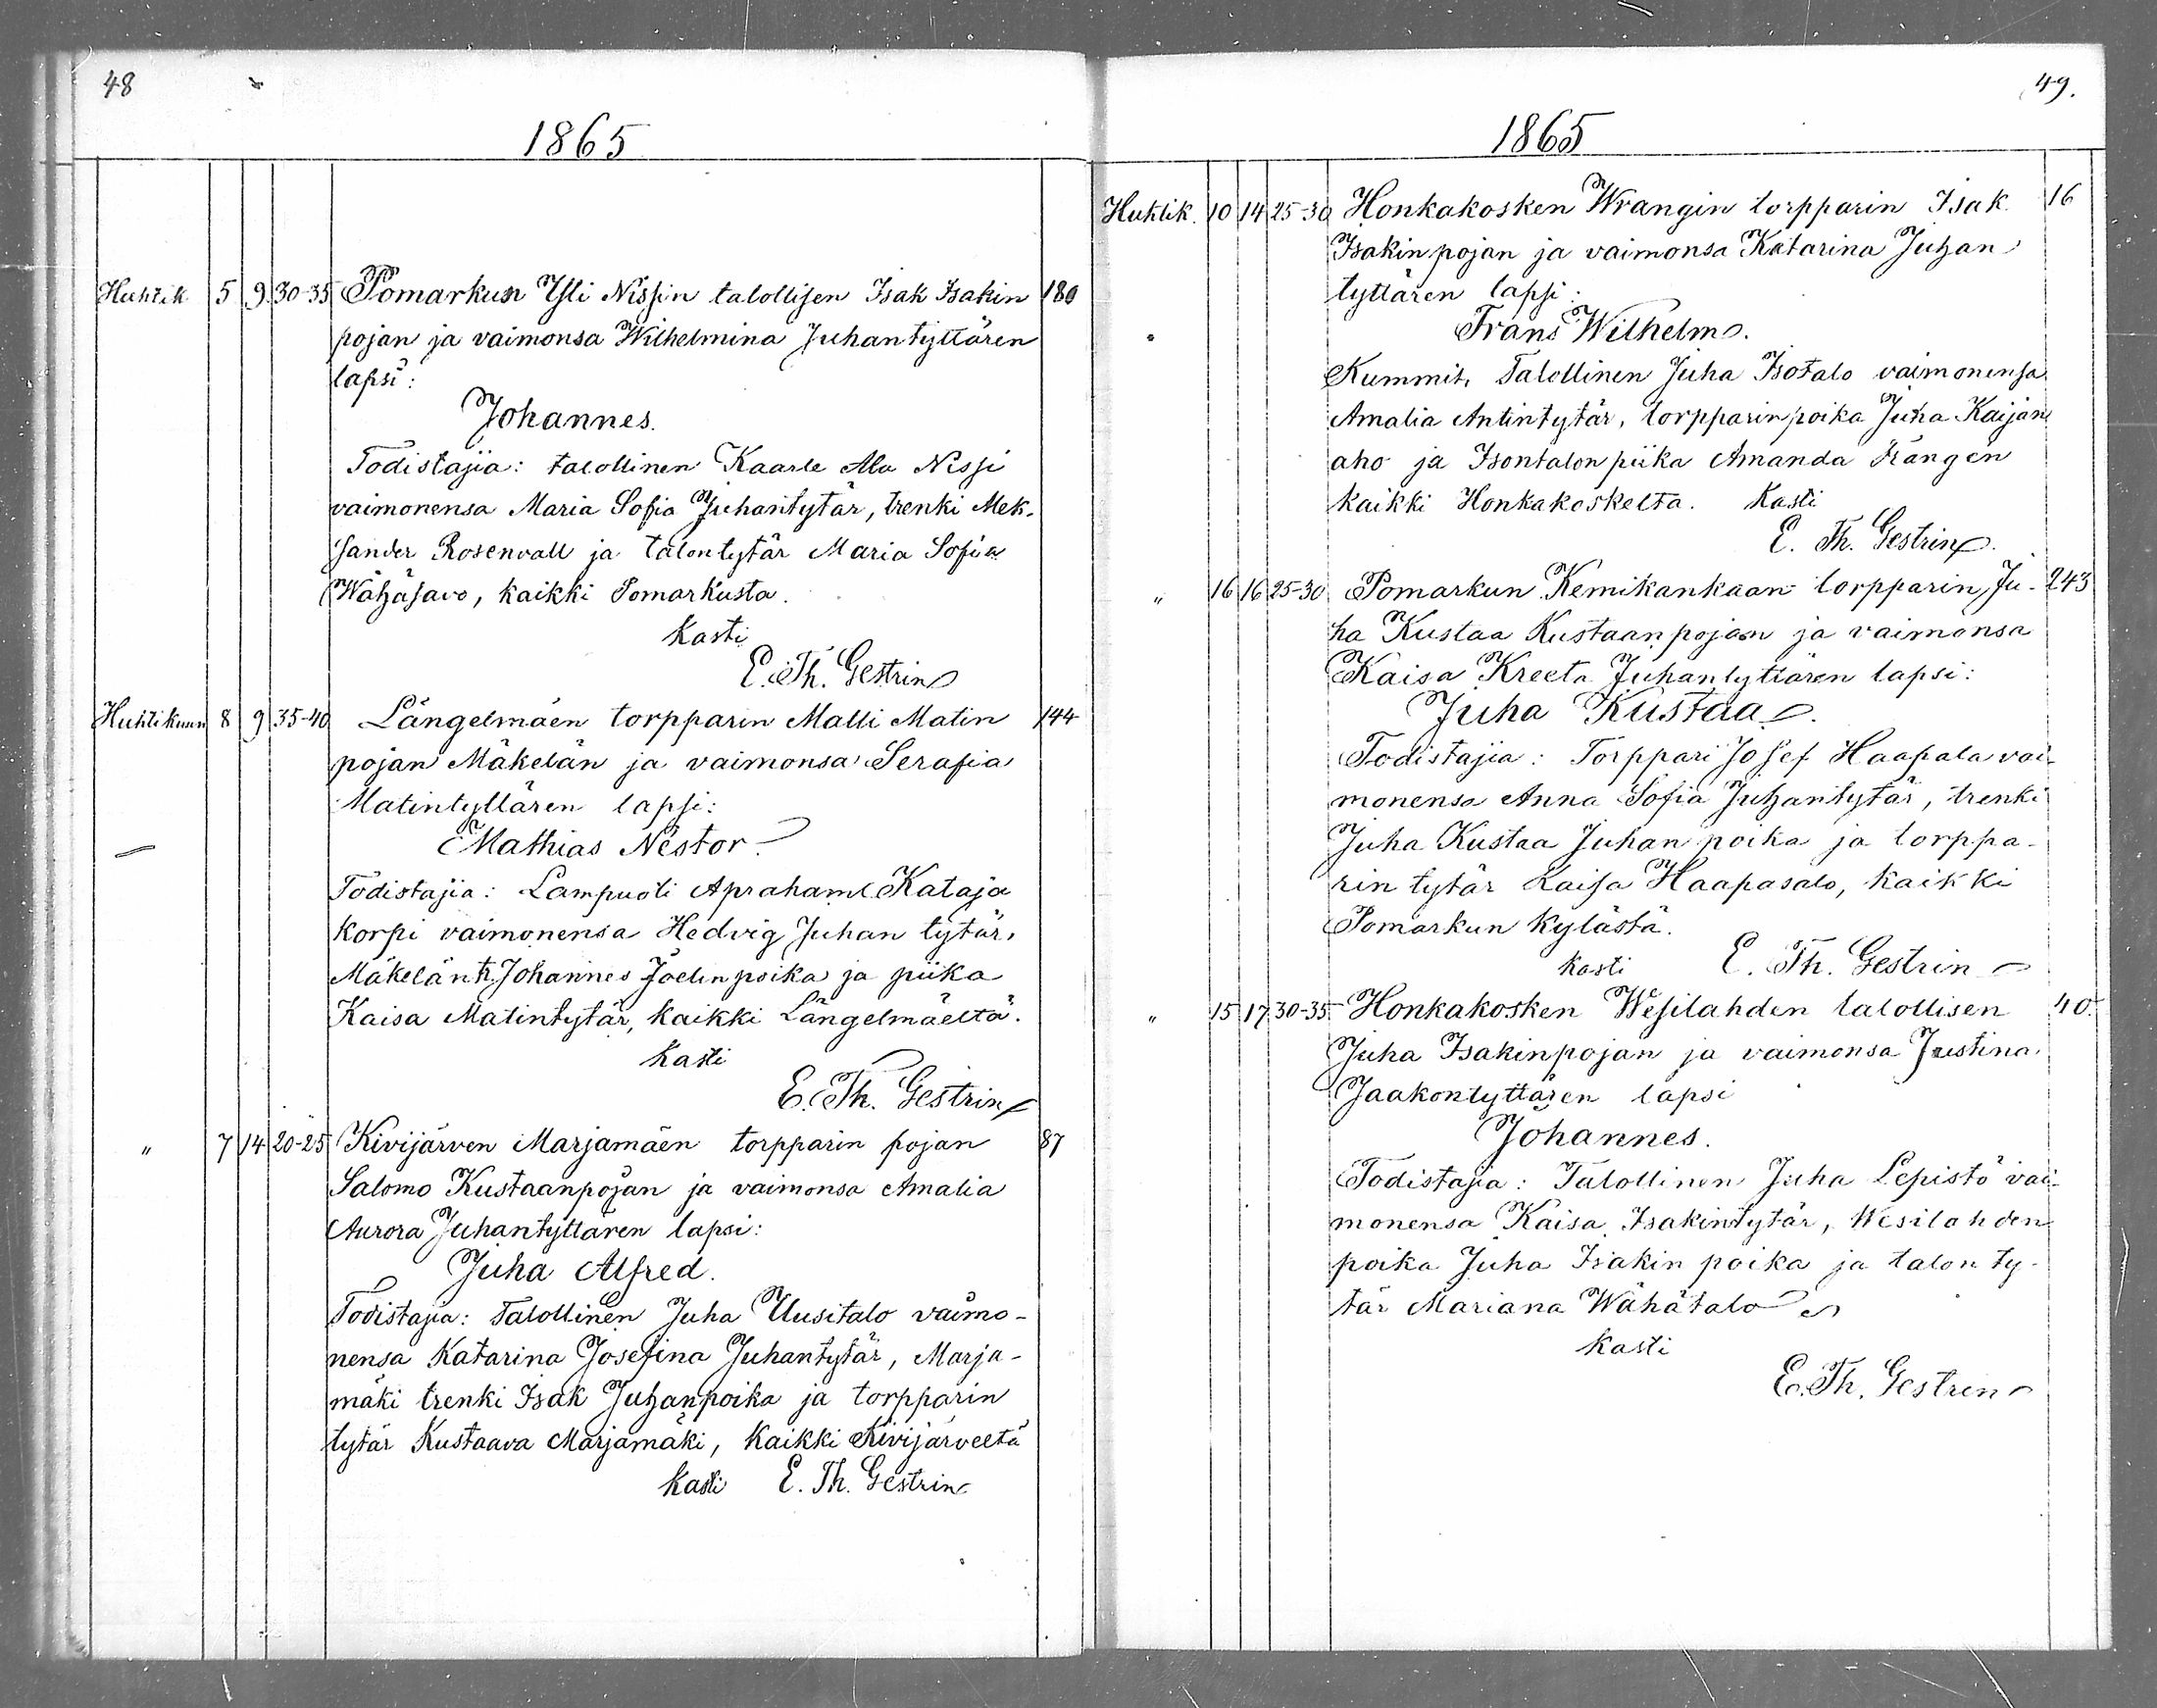 48
1865
Huhtik 5 9 30-35 Pomarkun Yli Nissin talollisen Isak Isakin 180
pojan ja vaimonsa Wilhelmina Juhantyttären
lapsi:
Johannes.
Todistajia: talollinen Kaarle Ala Nissi
vaimonensa Maria Sofia Juhantytär, trenki Alek-
sander Rosenvall ja talontytär Maria Sofia
Wähäsavo, kaikki Pomarkusta.
Kasti
E. Th. Gestrin
Huhtikuun 8 9 35-40 Längelmäen torpparin Matti Matin 144
pojan Mäkelän ja vaimonsa Serafia
Matintyttären lapsi:
Mathias Nestor.
Todistajia: Lampuoti Aprahami Kataja
korpi vaimonensa Hedvig Juhan tytär,
Mäkelän tr. Johannes Joelin poika ja piika
Kaisa Matintytär, kaikki Längelmäeltä.
Kasti
E. Th. Gestrin
" 7 14 20-25 Kivijärven Marjamäen torpparin pojan 87
Salomo Kustaanpojan ja vaimonsa Amalia
Aurora Juhantyttären lapsi:
Juha Alfred.
Todistajia: Talollinen Juha Uusitalo vaimo-
nensa Katarina Josefina Juhantytär, Marja-
mäki trenki Isak Juhanpoika ja torpparin
tytär Kustaava Marjamäki, kaikki Kivijärveltä
Kasti E. Th. Gestrin
49.
1865
Huhtik. 10 14 25-30 Honkakosken Wrangin torpparin Isak 16
Isakin pojan ja vaimonsa Katarina Juhan
tyttären lapsi:
Frans Wilhelm.
Kummit, Talollinen Juha Isotalo vaimonensa
Amalia Antintytär, torpparinpoika Juha Kaijan
aho ja Isontalon piika Amanda Frangen
kaikki Honkakoskelta. Kasti
E. Th. Gestrin.
" 16 16 25-30 Pomarkun Kemikankaan torpparin Ju- 243
ha Kustaa Kustaan pojan ja vaimonsa
Kaisa Kreeta Juhantyttären lapsi:
Juha Kustaa.
Todistajia: Torppari Josef Haapala vai-
monensa Anna Sofia Juhantytär, trenki
Juha Kustaa Juhan poika ja torppa-
rin tytär Kaisa Haapasalo, kaikki
Pomarkun kylästä.
Kasti E. Th. Gestrin
" 15 17 30-35 Honkakosken Wesilahden talollisen 40.
Juha Isakinpojan ja vaimonsa Justina
Jaakontyttären lapsi
Johannes.
Todistajia: Talollinen Juha Lepistö vai-
monensa Kaisa Isakintytär, Wesilahden
poika Juha Isakin poika ja talon ty-
tär Mariana Wähätalo
Kasti
E. Th. Gestrin